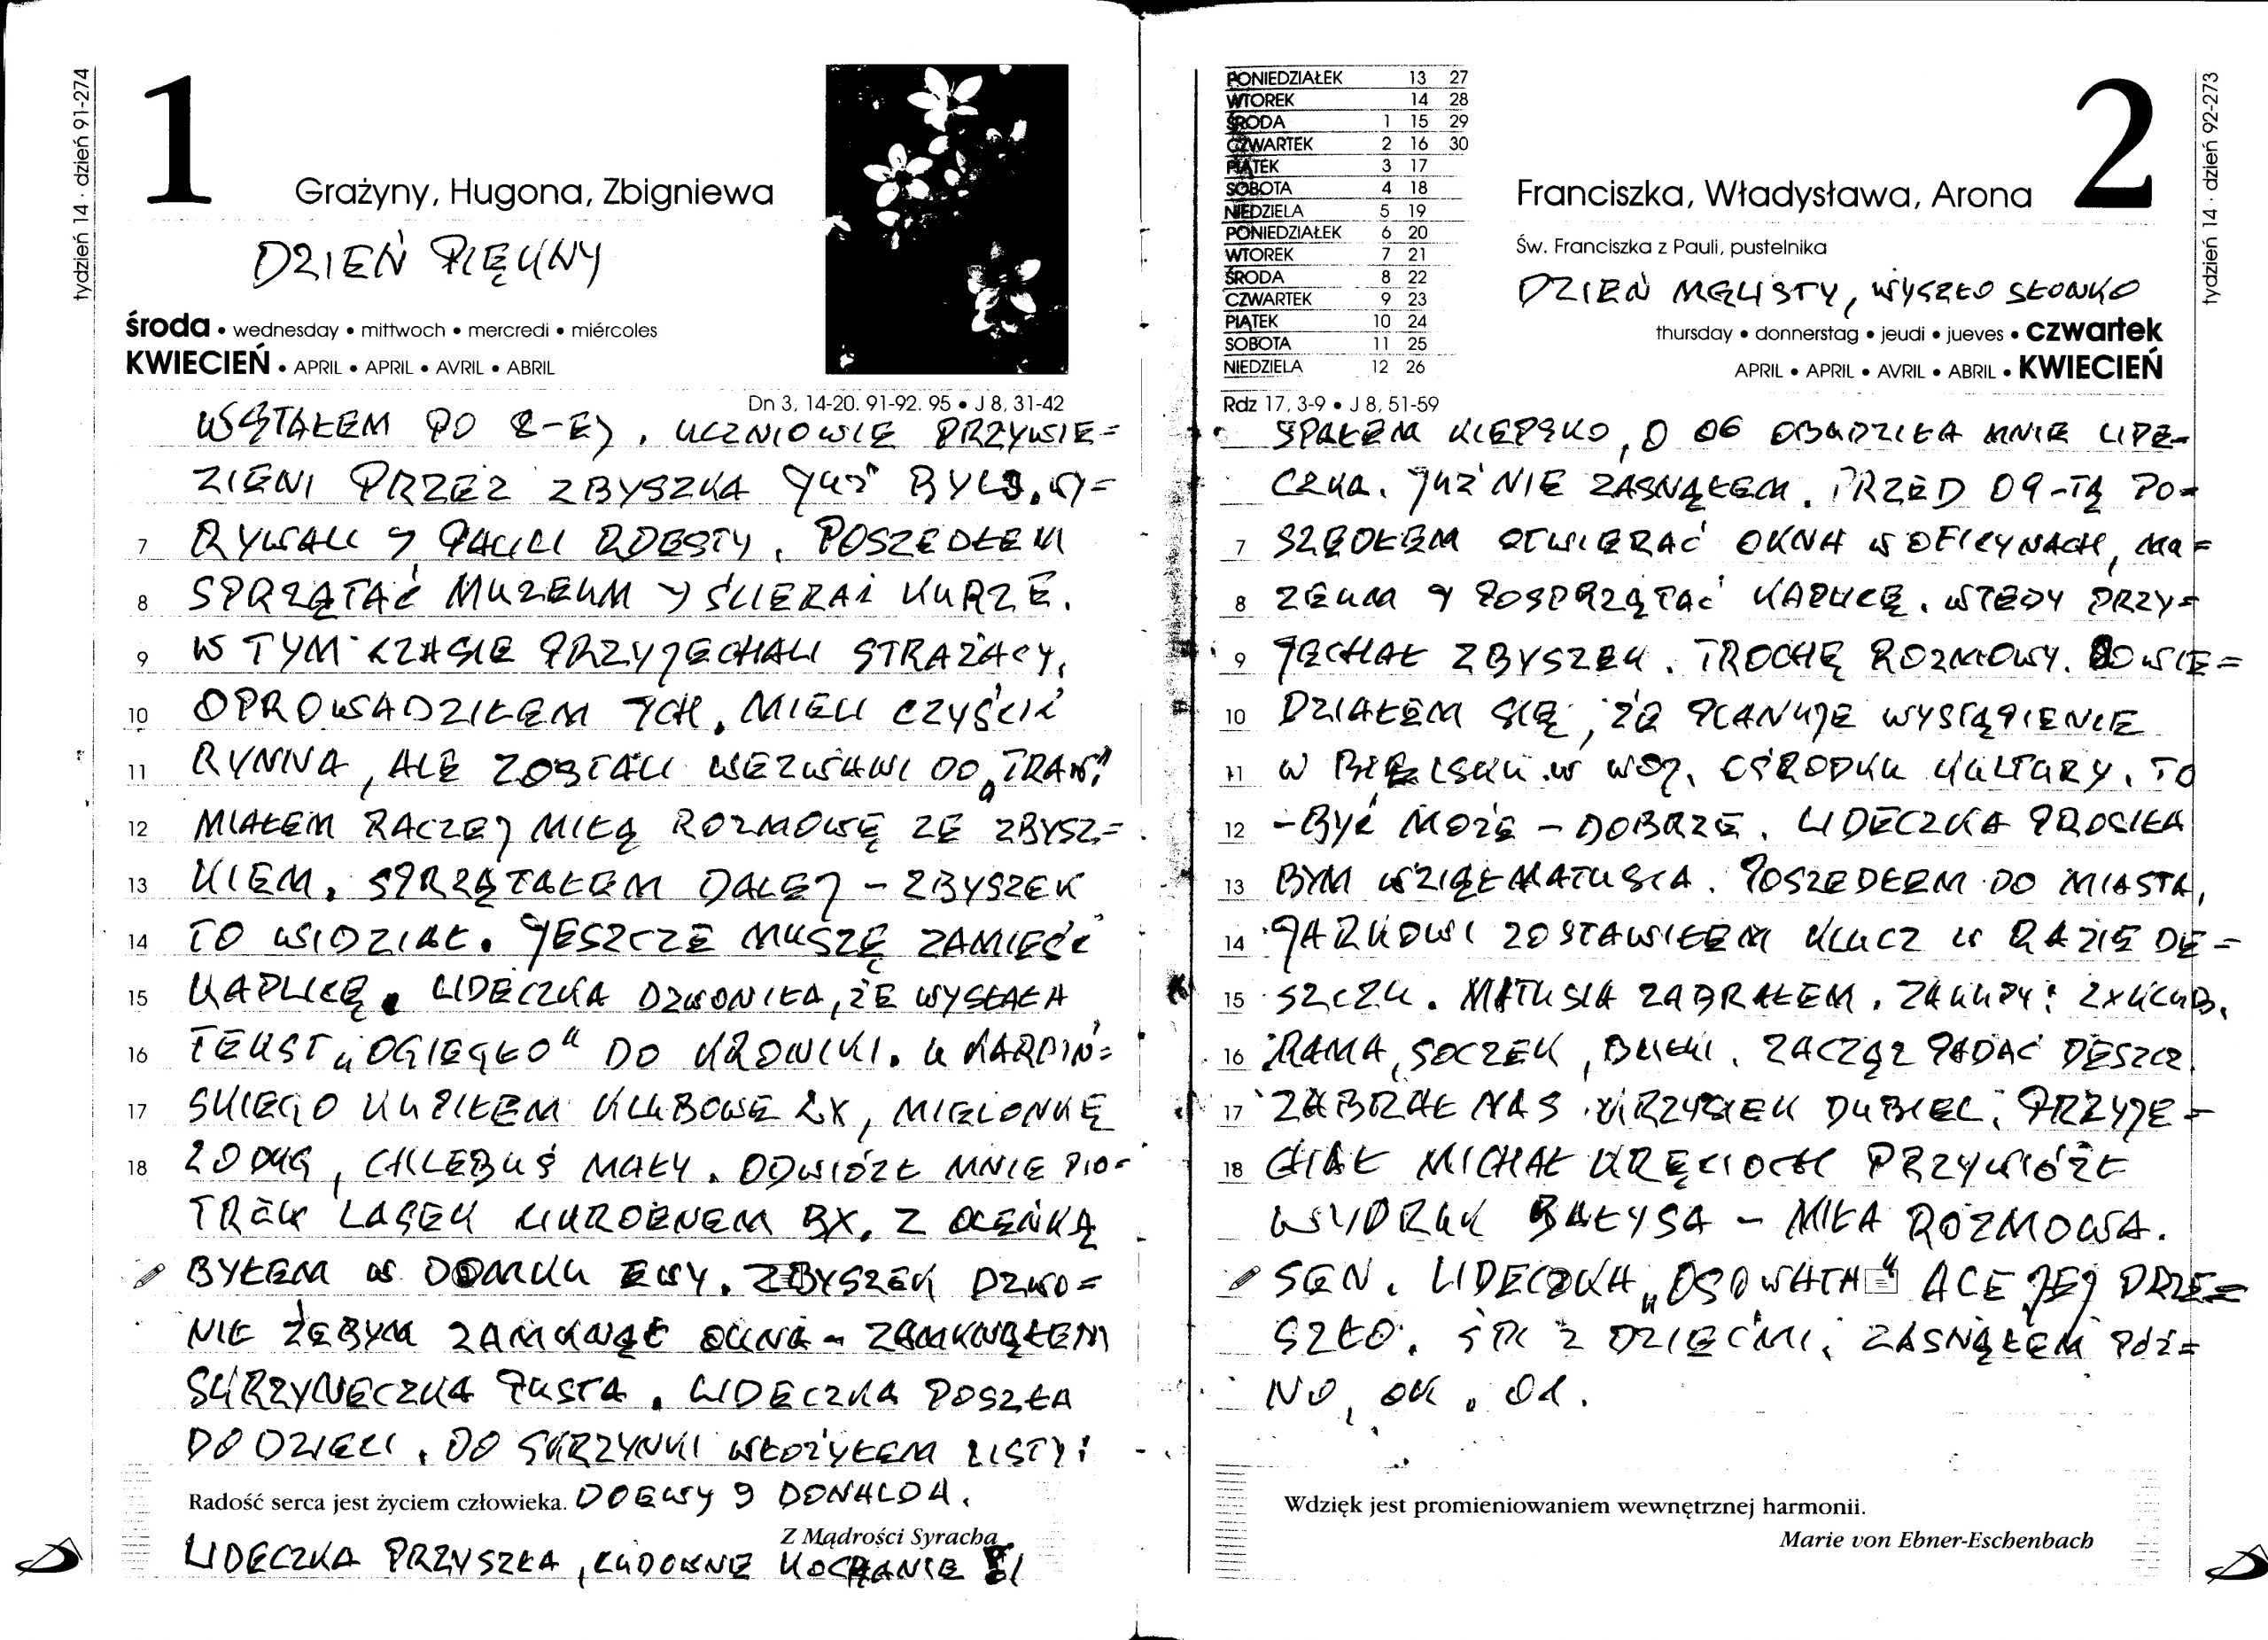 tydzień 14 · dzień 91-274
1
Grażyny, Hugona, Zbigniewa
DZIEŃ PIĘKNY
środa • wednesday • mittwoch • mercredi • miércoles
KWIECIEŃ • APRIL • APRIL • AVRIL • ABRIL
Dn 3, 14-20. 91-92. 95 • J 8, 31-42
WSTAŁEM PO 8-EJ, UCZNIOWIE PRZYWIE=
ZIENI PRZEZ ZBYSZKA JUŻ BYLI,
RYWALI I PALILI POSZEDŁEM
7
SPRZĄTAĆ MUZEUM I ŚCIERAĆ KURZE.
8
W TYM CZASIE PRZYJECHALI STRAŻACY,
9
OPROWADZIŁEM ICH, MIELI CZYŚCIĆ
10
RYNNA, ALE ZOSTALI WEZWANI DO „TRAW"
11
MIAŁEM RACZEJ MIŁĄ ROZMOWĘ ZE ZBYSZ=
12
KIEM. SPRZĄTAŁEM DALEJ – ZBYSZEK
13
TO WIDZIAŁ. JESZCZE MUSZĘ ZAMIEŚĆ
14
KAPLICĘ. LIDECZKA DZWONIŁA, ŻE WYSŁAŁA
15
TEKST „OGIEGŁO" DO KRONIKI. U KARPIŃ=
16
SKIEGO KUPIŁEM KLUBOWE 2X, MIELONKĘ
17
20 DKG, CHLEBUŚ MAŁY. ODWIÓZŁ MNIE PIO=
18
TREK LASEK CITROENEM BX. Z OLEŃKĄ
BYŁEM W DOMKU EWY. ZBYSZEK DZWO=
NIŁ ŻEBYM ZAMKNĄŁ OKNA – ZAMKNĄŁEM
SKRZYNECZKA PUSTA. LIDECZKA POSZŁA
DO DZIECI. DO SKRZYNKI WŁOŻYŁEM LISTY:
Radość serca jest życiem człowieka. DO EWY I DONALDA.
Z Mądrości Syracha
LIDECZKA PRZYSZŁA, CUDOWNE KOCHANIE !
PONIEDZIAŁEK 13 27
WTOREK 14 28
ŚRODA 1 15 29
CZWARTEK 2 16 30
PIĄTEK 3 17
SOBOTA 4 18
NIEDZIELA 5 19
PONIEDZIAŁEK 6 20
WTOREK 7 21
ŚRODA 8 22
CZWARTEK 9 23
PIĄTEK 10 24
SOBOTA 11 25
NIEDZIELA 12 26
2
tydzień 14 · dzień 92-273
Franciszka, Władysława, Arona
Św. Franciszka z Pauli, pustelnika
DZIEŃ MGLISTY, WYSZŁO SŁONKO
thursday • donnerstag • jeudi • jueves • czwartek
APRIL • APRIL • AVRIL • ABRIL • KWIECIEŃ
Rdz 17, 3-9 • J 8, 51-59
SPAŁEM KIEPSKO, O 06 OBUDZIŁA MNIE LIDE=
CZKA. JUŻ NIE ZASNĄŁEM. PRZED 09-TĄ PO=
SZEDŁEM OTWIERAĆ OKNA W OFICYNACH, MU=
7
ZEUM I POSPRZĄTAĆ KAPLICĘ. WTEDY PRZY=
8
JECHAŁ ZBYSZEK. TROCHĘ ROZMOWY. DOWIE=
9
DZIAŁEM SIĘ, ŻE PLANUJE WYSTĄPIENIE
10
W BIELSKU W WOJ. OŚRODKU KULTURY. TO
11
–BYĆ MOŻE – DOBRZE. LIDECZKA PROSIŁA
12
BYM WZIĄŁ MATUSIA. POSZEDŁEM DO MIASTA,
13
JARKOWI ZOSTAWIŁEM KLUCZ W RAZIE DE=
14
SZCZU. MATUSIA ZABRAŁEM. ZAKUPY: 2X KLUB.
15
RAMA, SOCZEK, BUŁKI. ZACZĄŁ PADAĆ DESZCZ
16
ZABRAŁ NAS KRZYSIEK DUBIEL. PRZYJE=
17
CHAŁ MICHAŁ KRĘCIOCH PRZYWIÓZŁ
18
WYDRUK BAŁYSA – MIŁA ROZMOWA.
SEN. LIDECZKA „OSOWAŁA" ALE JEJ PRZE=
SZŁO. Z DZIEĆMI. ZASNĄŁEM PÓŹ=
NO, OK. 01.
Wdzięk jest promieniowaniem wewnętrznej harmonii.
Marie von Ebner-Eschenbach